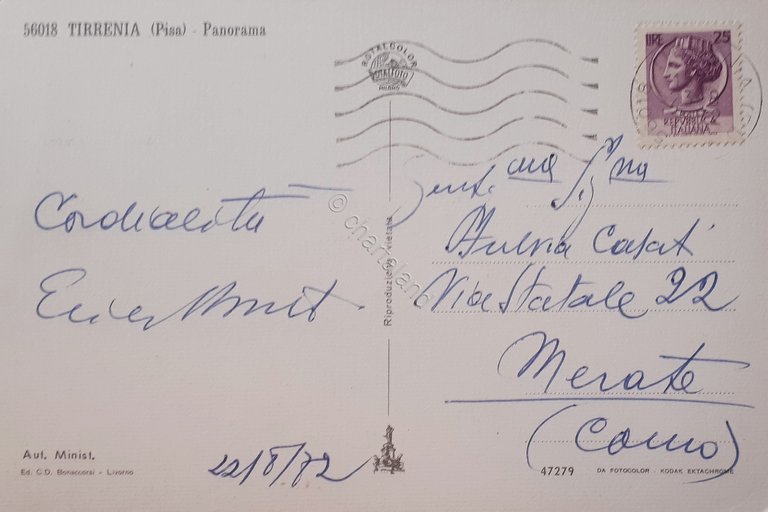 56018 TIRRENIA (Pisa) - Panorama
ROTALCOLOR
ROTALFOTO
MILANO
LIRE 25
REPUBBLICA
ITALIANA
Cordialità
Gent.ma Sig.na
Fulvia Casati
Via Statale 22
Merate
(Como)
22/8/72
Riproduzione vietata
© chartaland
Aut. Minist.
Ed. C.D. Bonaccorsi - Livorno
47279
DA FOTOCOLOR - KODAK EKTACHROME